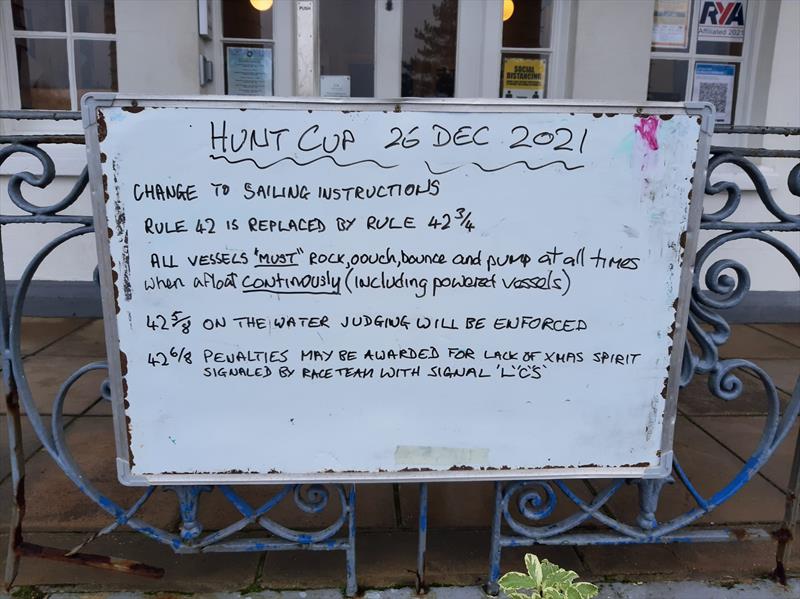 PUSH
RYA
Affiliated 2021
SOCIAL
DISTANCING
HUNT CUP 26 DEC 2021
CHANGE TO SAILING INSTRUCTIONS
RULE 42 IS REPLACED BY RULE 42 3/4
ALL VESSELS "MUST" ROCK, oouch, bounce and pump at all times
when afloat CONTINOUSLY (including powered vessels)
42 5/8 ON THE WATER JUDGING WILL BE ENFORCED
42 6/8 PENALTIES MAY BE AWARDED FOR LACK OF XMAS SPIRIT
SIGNALED BY RACE TEAM WITH SIGNAL 'L''C''S'